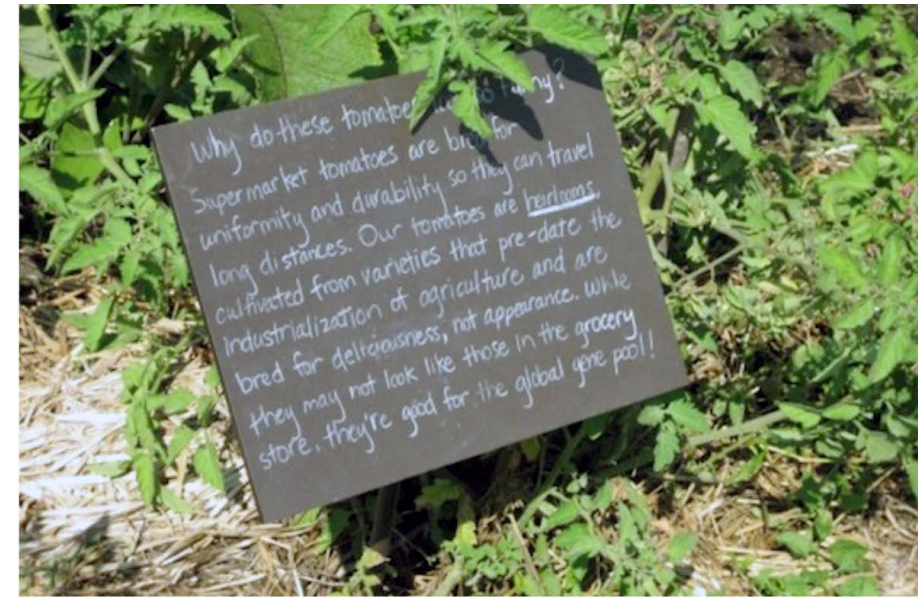 Why do these tomatoes so funny?
Supermarket tomatoes are bred for
uniformity and durability so they can travel
long distances. Our tomatoes are heirlooms,
cultivated from varieties that pre-date the
industrialization of agriculture and are
bred for deliciousness, not appearance. While
they may not look like those in the grocery
store, they're good for the global gene pool!